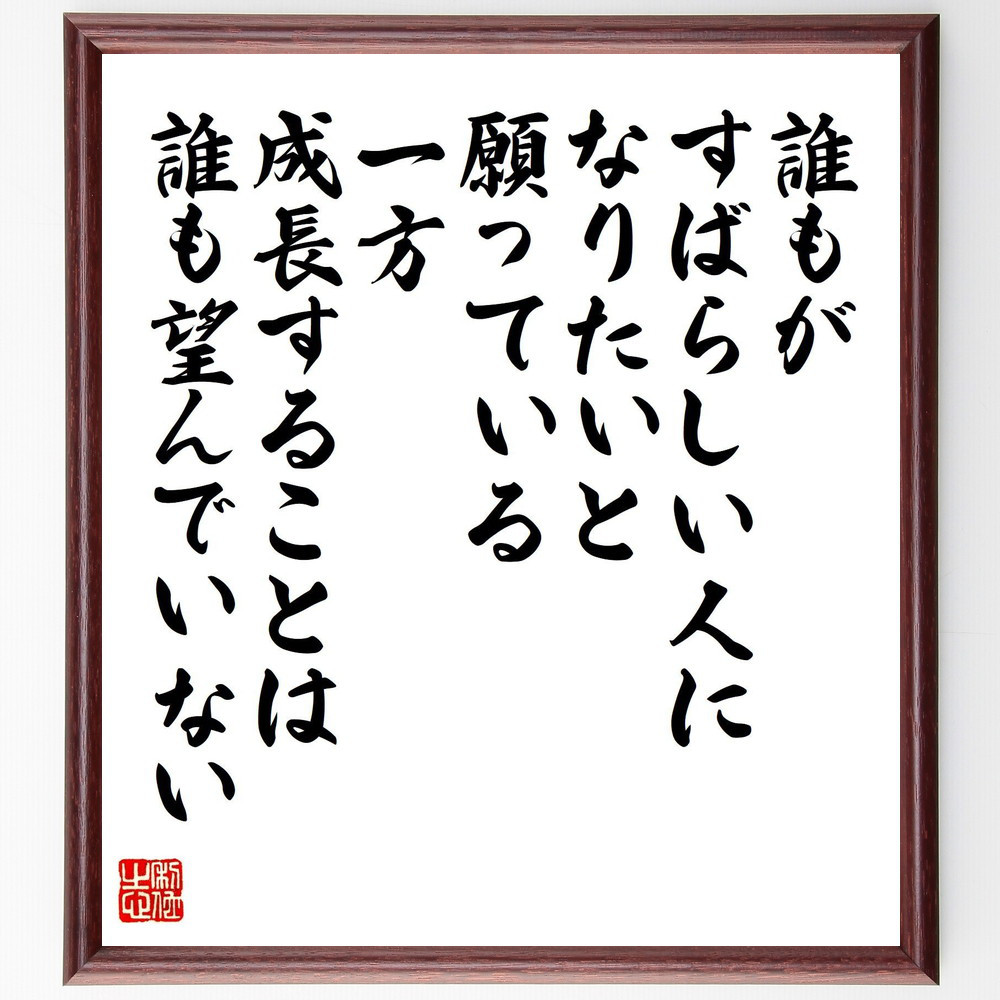 誰もが
すばらしい人に
なりたいと
願っている
一方
成長することは
誰も望んでいない